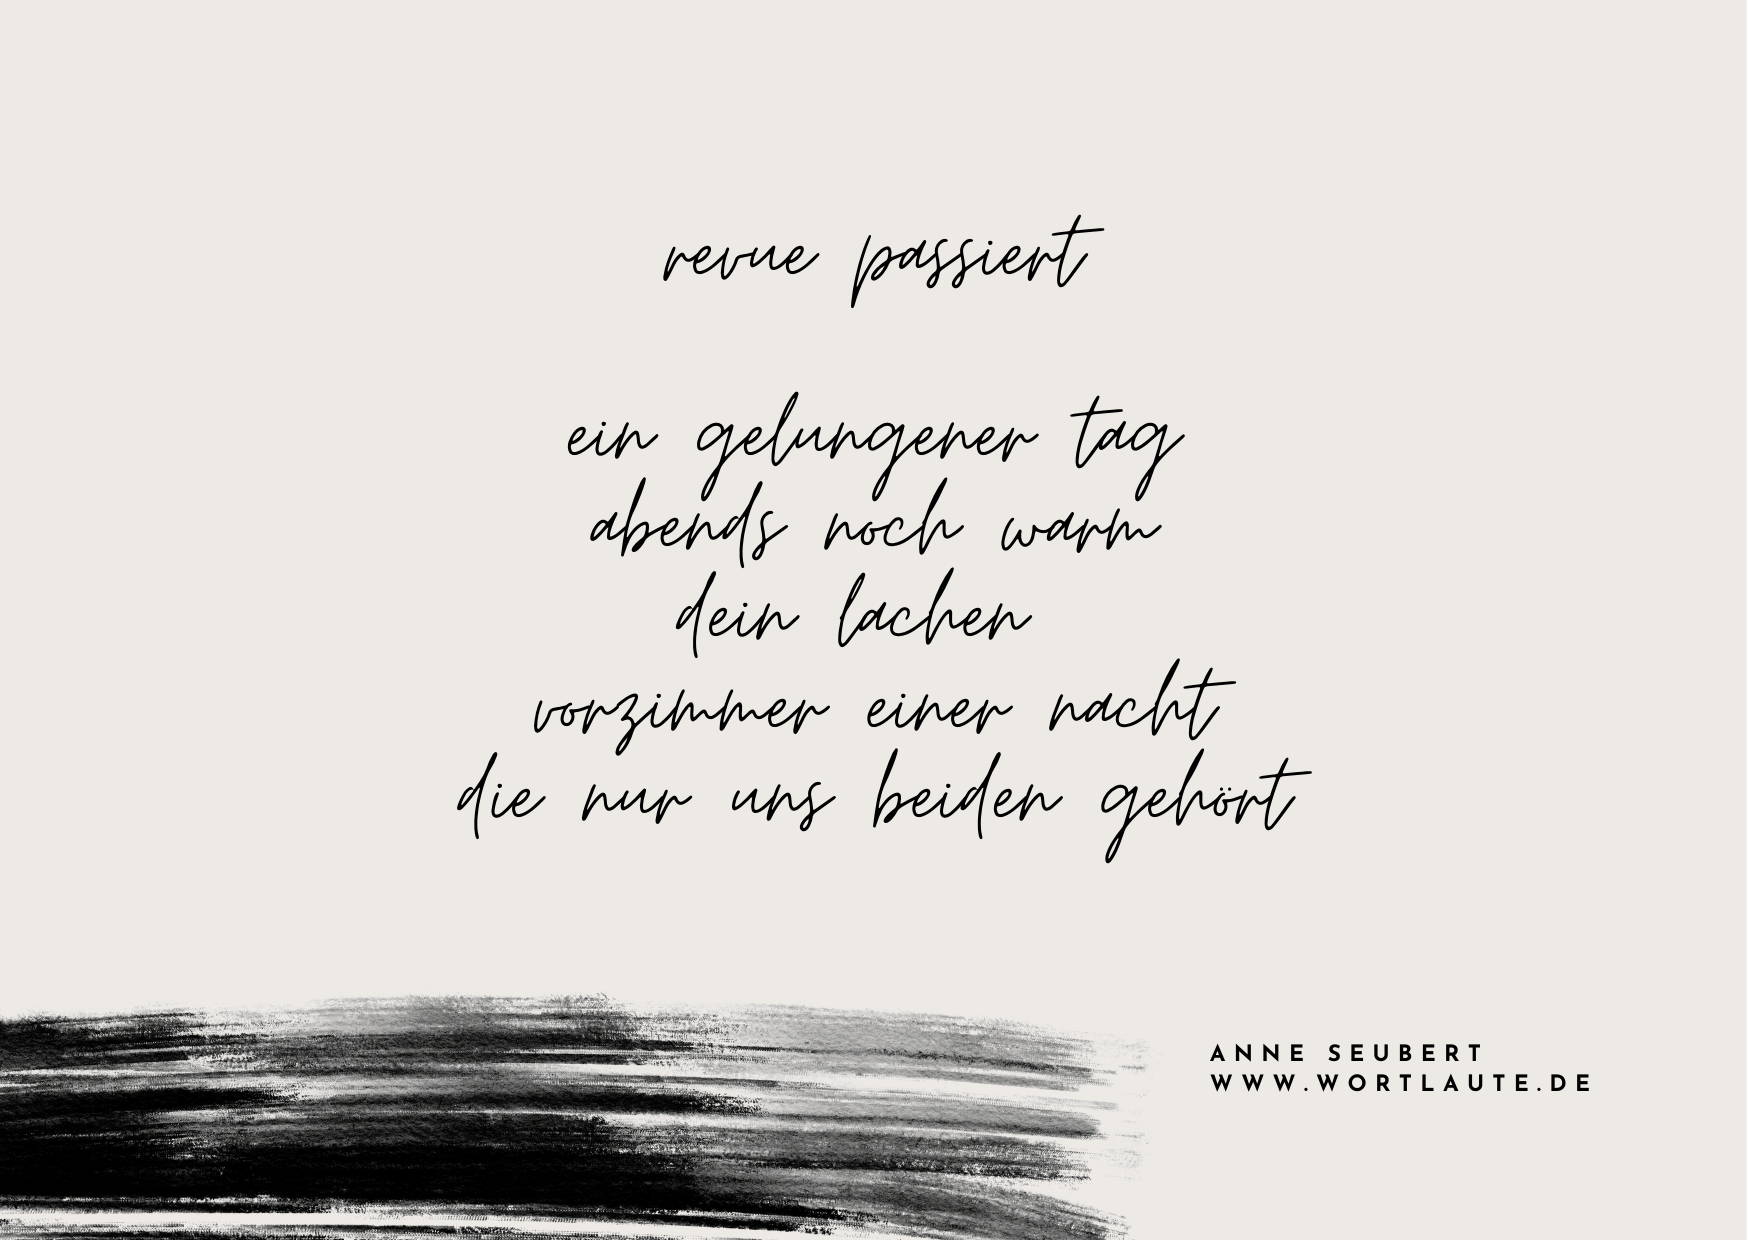 revue passiert
ein gelungener tag
abends noch warm
dein lachen
vorzimmer einer nacht
die nur uns beiden gehört
ANNE SEUBERT
WWW.WORTLAUTE.DE